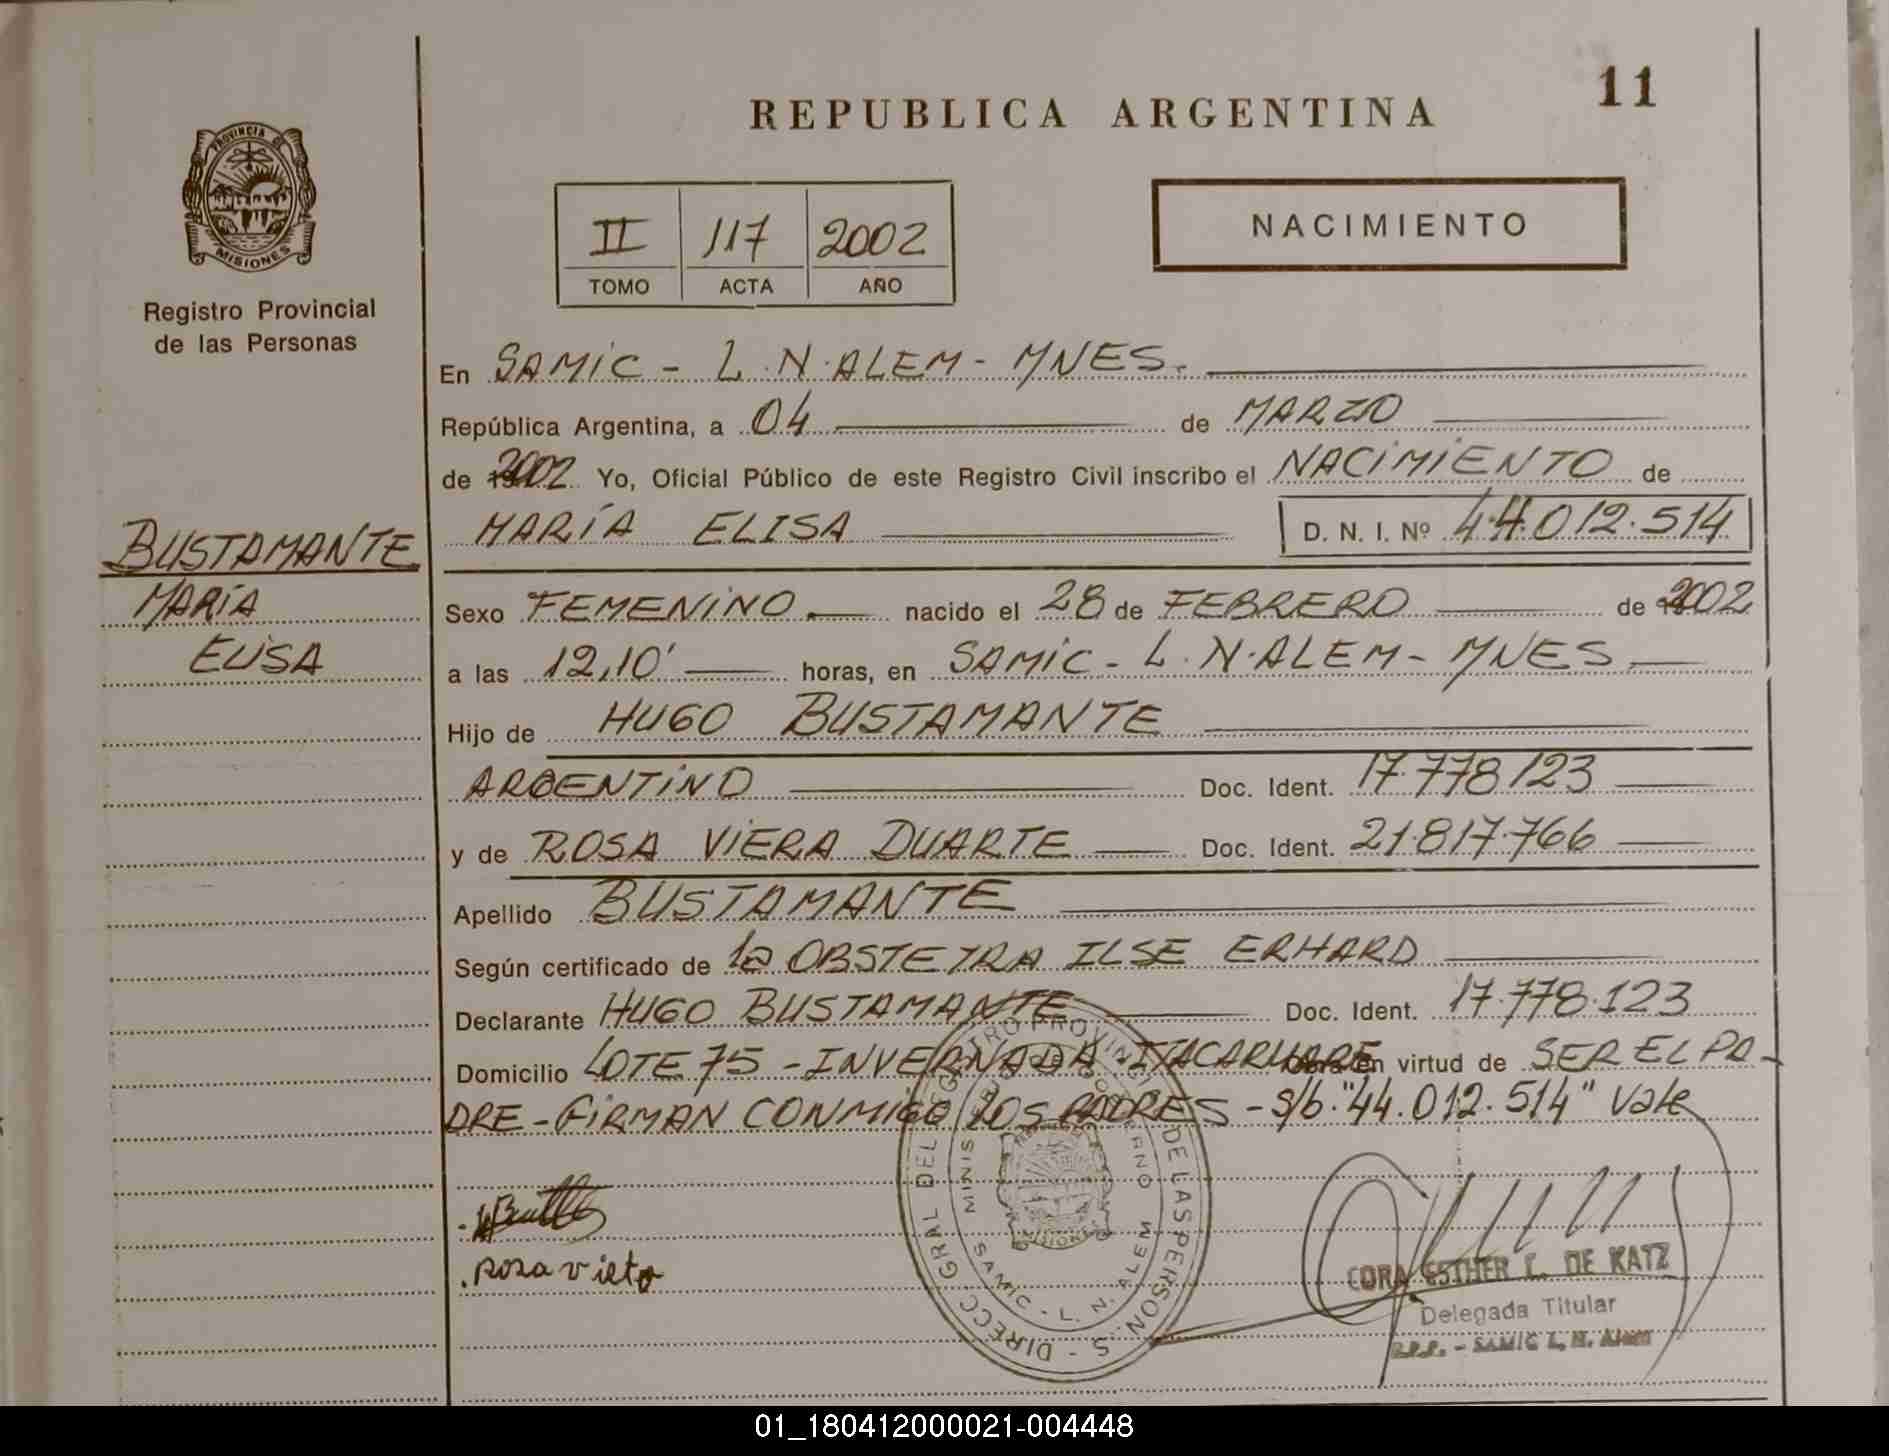 REPUBLICA ARGENTINA
11
PROVINCIA DE
MISIONES
Registro Provincial
de las Personas
II 117 2002
TOMO ACTA AÑO
NACIMIENTO
En SAMIC - L.N.ALEM - MNES.
República Argentina, a 04 de MARZO
de 2002 Yo, Oficial Público de este Registro Civil inscribo el NACIMIENTO de
MARÍA ELISA D. N. I. Nº 44.012.514
BUSTAMANTE
MARÍA
ELISA
Sexo FEMENINO nacido el 28 de FEBRERO de 2002
a las 12,10' horas, en SAMIC - L.N.ALEM - MNES
Hijo de HUGO BUSTAMANTE
ARGENTINO Doc. Ident. 17.778.123
y de ROSA VIERA DUARTE Doc. Ident. 21.817.766
Apellido BUSTAMANTE
Según certificado de la OBSTETRA ILSE ERHARD
Declarante HUGO BUSTAMANTE Doc. Ident. 17.778.123
Domicilio LOTE 75 - INVERNADA - ITACARUARE Obra en virtud de SER EL PA-
DRE - FIRMAN CONMIGO LOS PADRES - s/b. "44.012.514" Vale
DIRECC GRAL DEL REGISTRO PROVINCIAL DE LAS PERSONAS
MINISTERIO DE GOBIERNO
SAMIC - L. N. ALEM
MISIONES
Rosa
CORA ESTHER DE KATZ
Delegada Titular
R.P.P. - SAMIC L. N. Alem
01_180412000021-004448